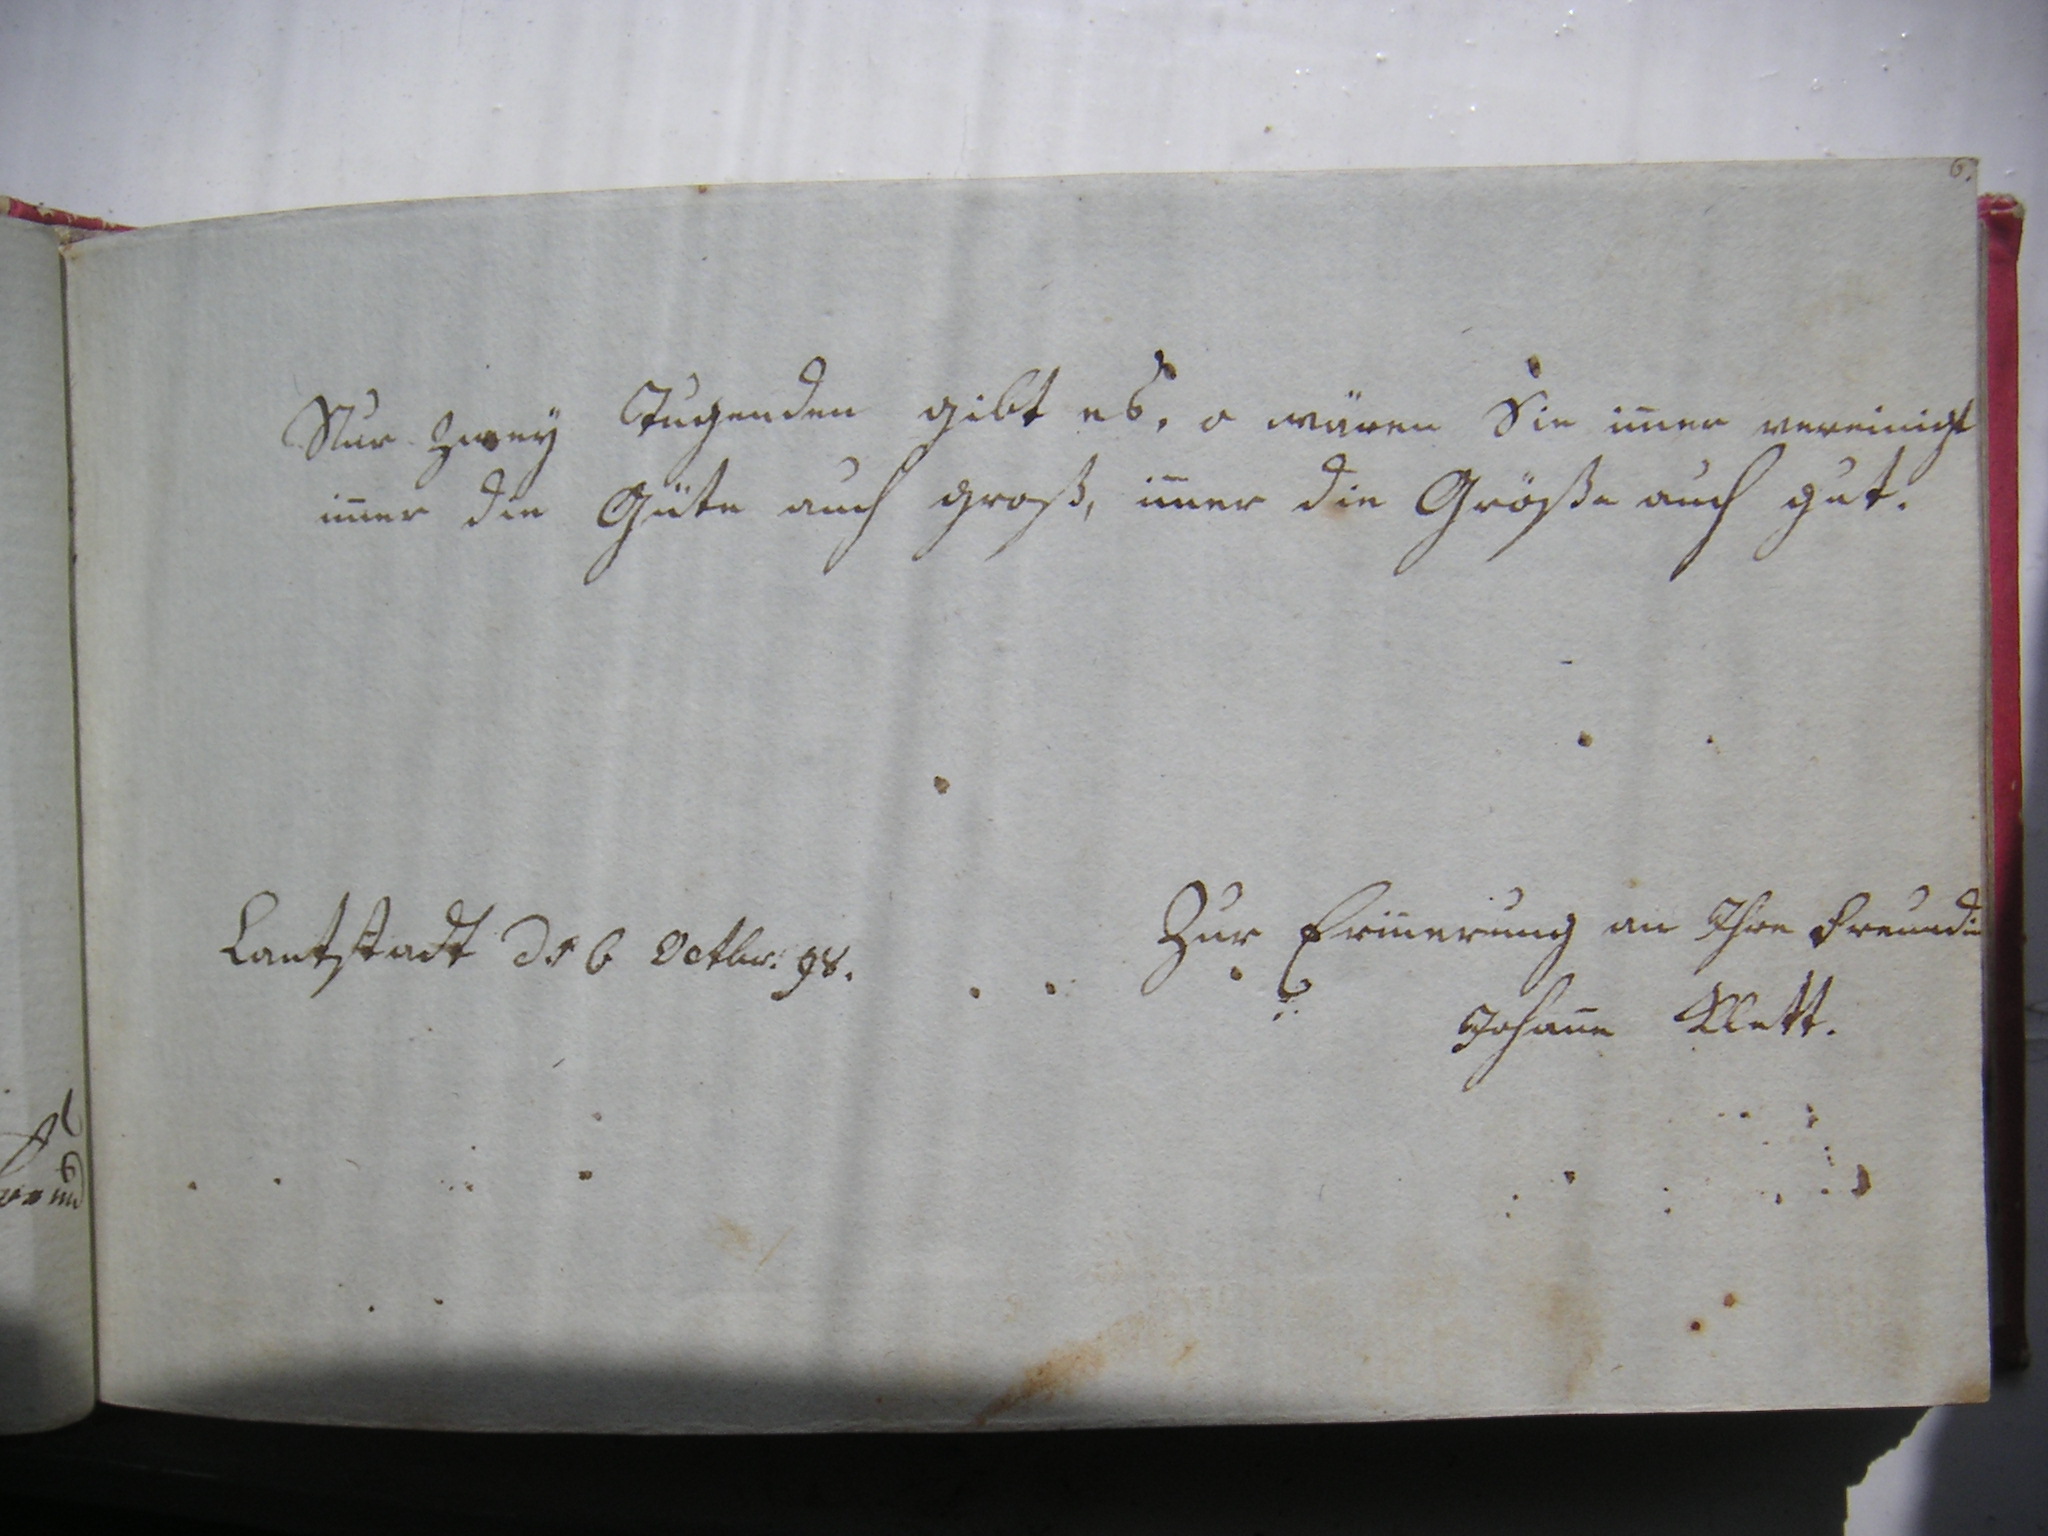 6.
Nur zwey Tugenden gibt es, o wären Sie im̄er vereinigt
im̄er die Güte auch groß, im̄er die Größe auch gut.
Lautstadt d. 6 Octbr. 98.
Zur Erin̄erung an Ihre Freundin
Johan̄e Klett.